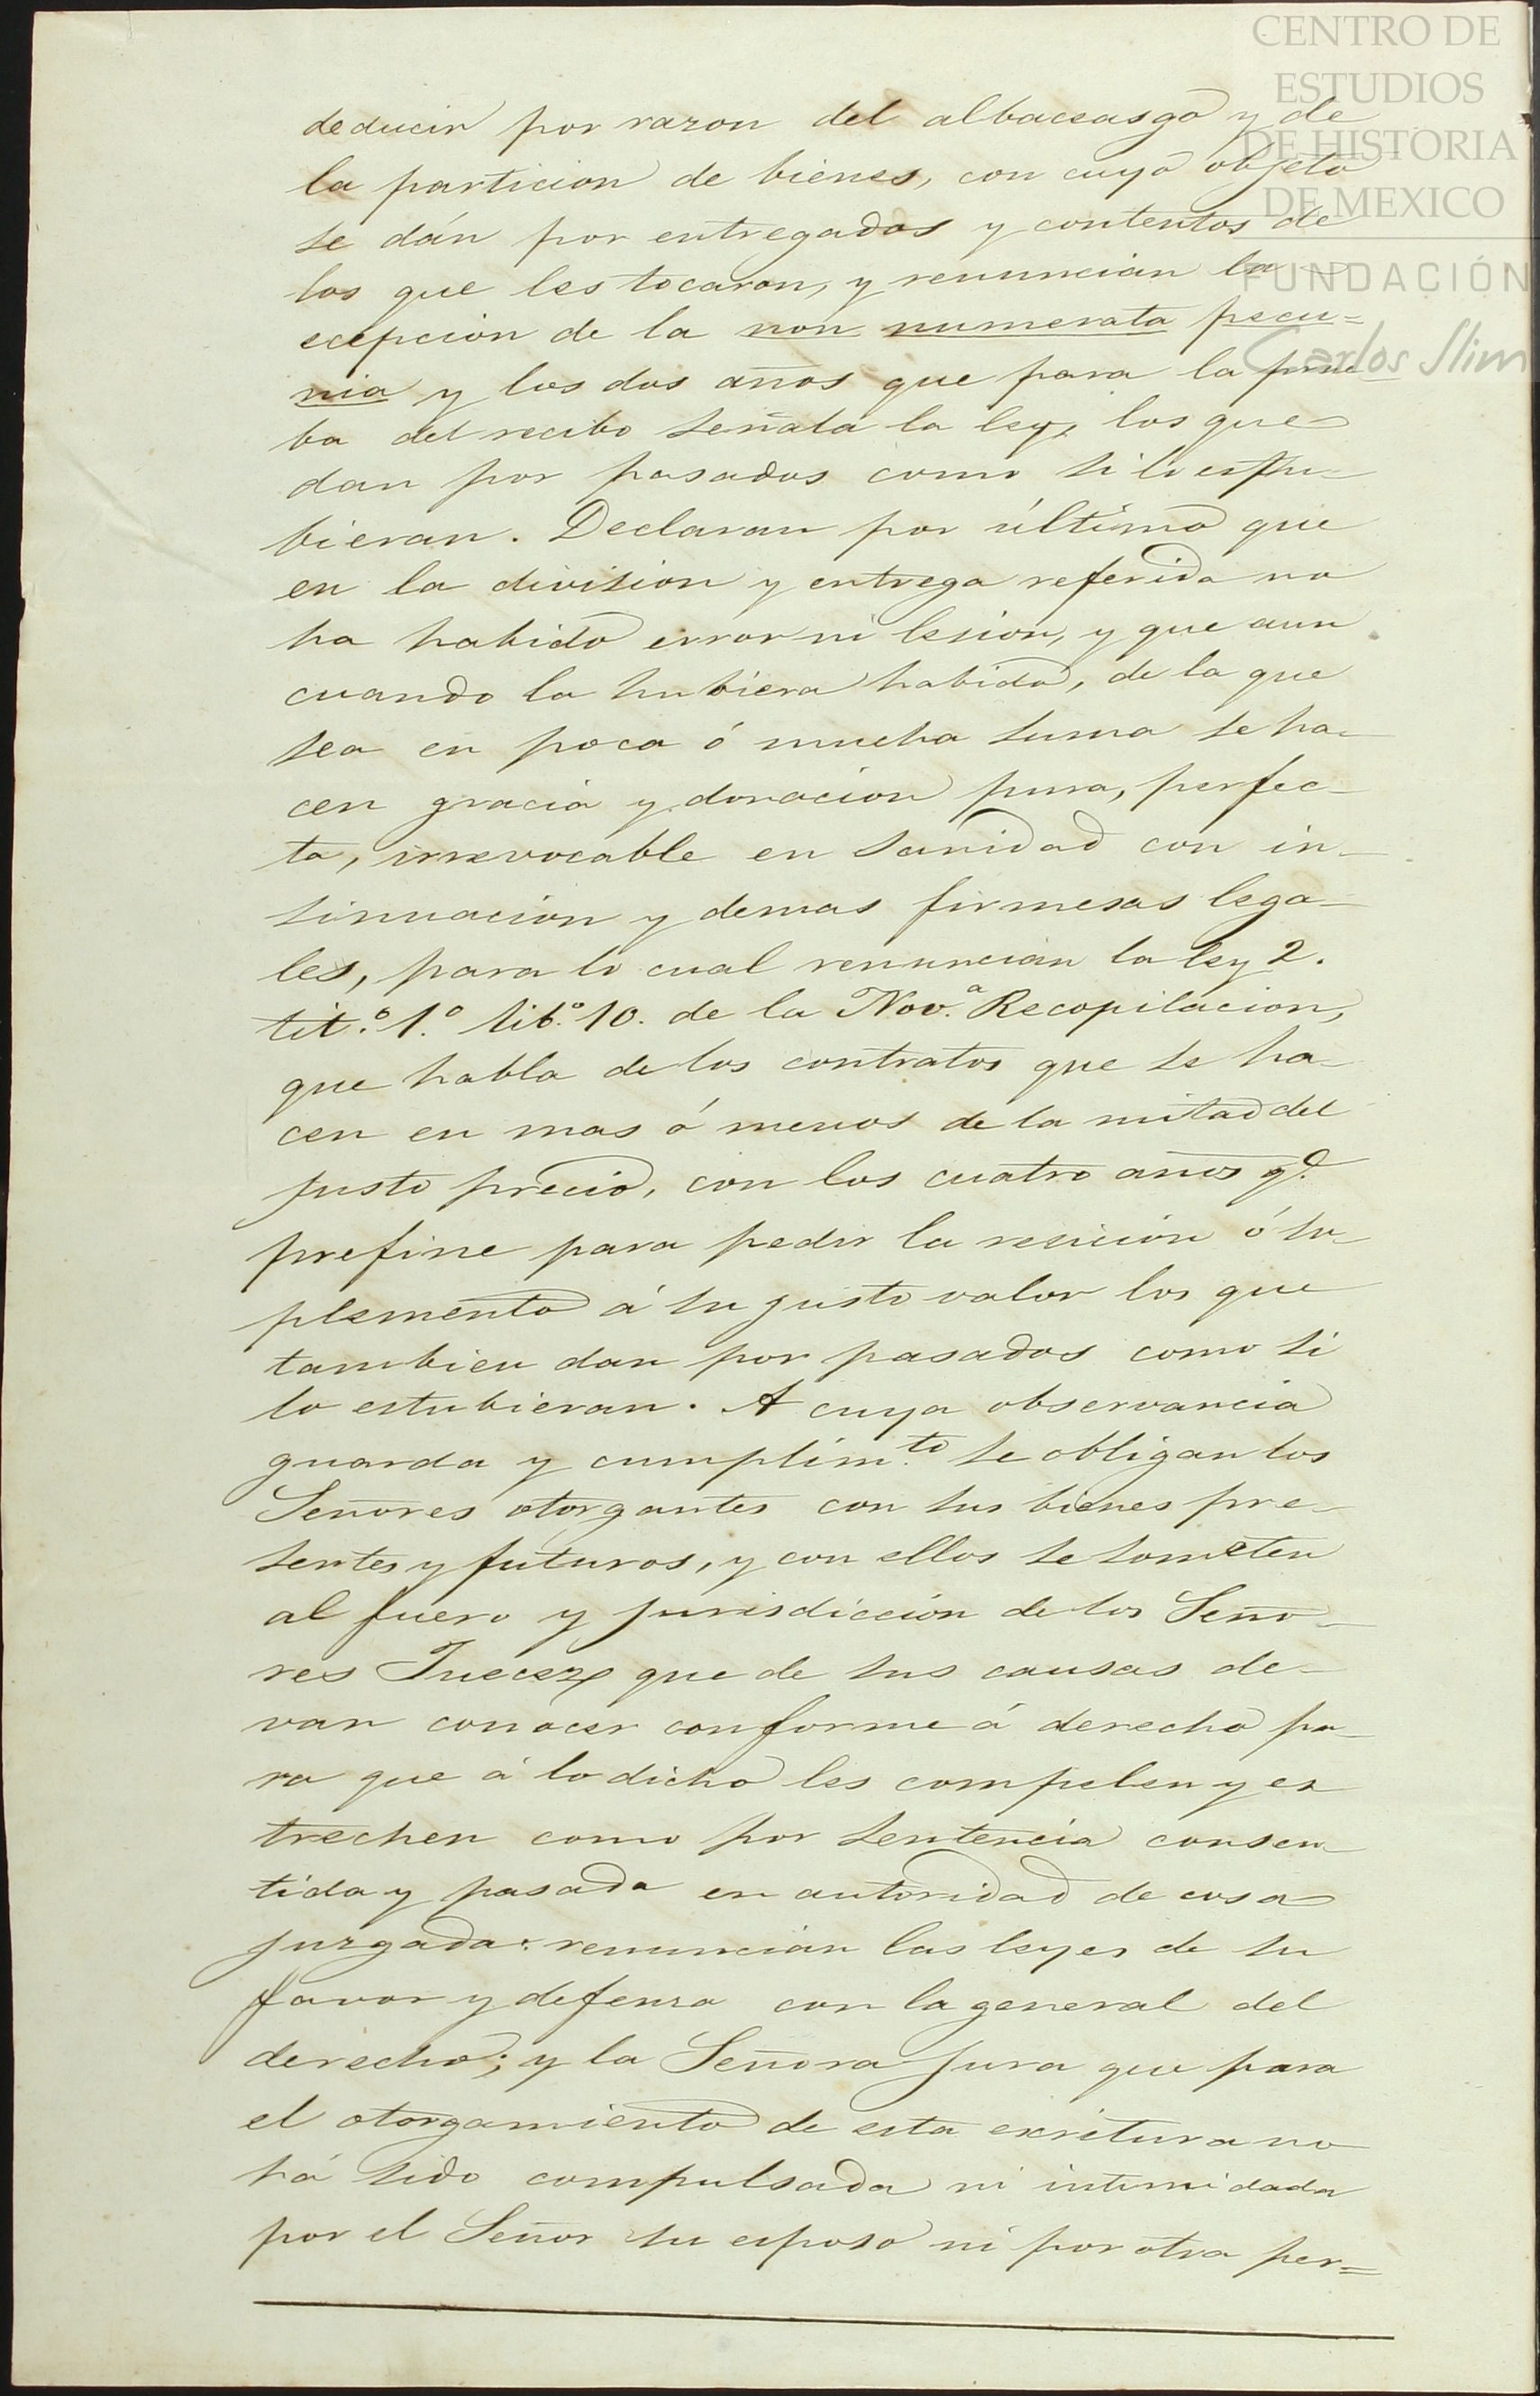 CENTRO DE
ESTUDIOS
DE HISTORIA
DE MEXICO
FUNDACIÓN
Carlos Slim
deducir por razon del albaceasgo y de
la particion de bienes, con cuyo objeto
se dán por entregados y contentos de
los que les tocaron, y renuncian la
ecepcion de la non numerata pecu=
nia y los dos años que para la prue
ba del recibo señala la ley, los que
dan por pasados como si lo estu-
bieran. Declaran por último que
en la division y entrega referida no
ha habido error ni lesion, y que aun
cuando la hubiera habido, de la que
sea en poca ó mucha suma se ha-
cen gracia y donacion pura, perfec-
ta, irrevocable en sanidad con in-
sinuacion y demas firmesas lega-
les, para lo cual renuncian la ley 2.
tit.º 1.º lib.º 10. de la Nov.ª Recopilacion,
que habla de los contratos que se ha-
cen en mas ó menos de la mitad del
justo precio, con los cuatro años q.e
prefine para pedir la resicion ó su-
plemento á su justo valor los que
tambien dan por pasados como si
lo estubieran. A cuya observancia
guarda y cumplim.to se obligan los
Señores otorgantes con sus bienes pre-
sentes y futuros, y con ellos se someten
al fuero y jurisdiccion de los Seño-
res Jueces que de sus causas de-
van conocer conforme á derecho pa-
ra que á lo dicho les compelen y es
trechen como por sentencia consen-
tida y pasada en autoridad de cosa
juzgada: renuncian las leyes de su
favor y defensa con la general del
derecho; y la Señora jura que para
el otorgamiento de esta escritura no
há sido compulsada ni intimidada
por el Señor su esposo ni por otra per=